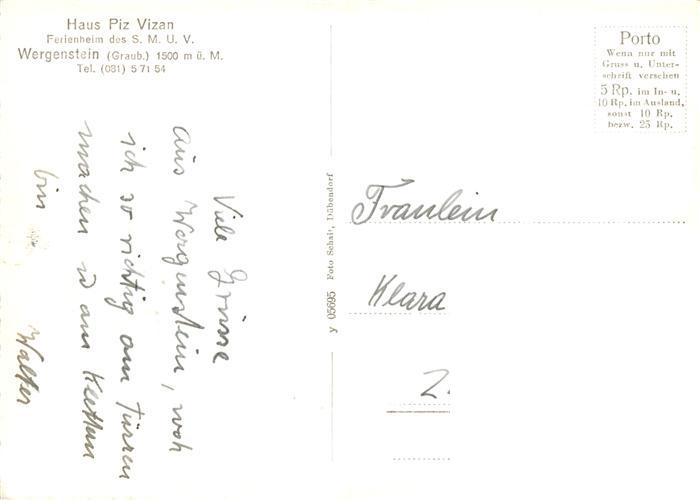 Haus Piz Vizan
Ferienheim des S. M. U. V.
Wergenstein (Graub.) 1500 m ü. M.
Tel. (081) 5 71 54
Viele Grüsse
aus Wergenstein, woh
ich so richtig am Turren
machen u am Klettern
bin
Walter
y 05695 Foto Schait, Dübendorf
Porto
Wenn nur mit
Gruss u. Unter-
schrift versehen
5 Rp. im In- u.
10 Rp. im Ausland,
sonst 10 Rp.
bezw. 25 Rp.
Fraulein
Klara
Z.